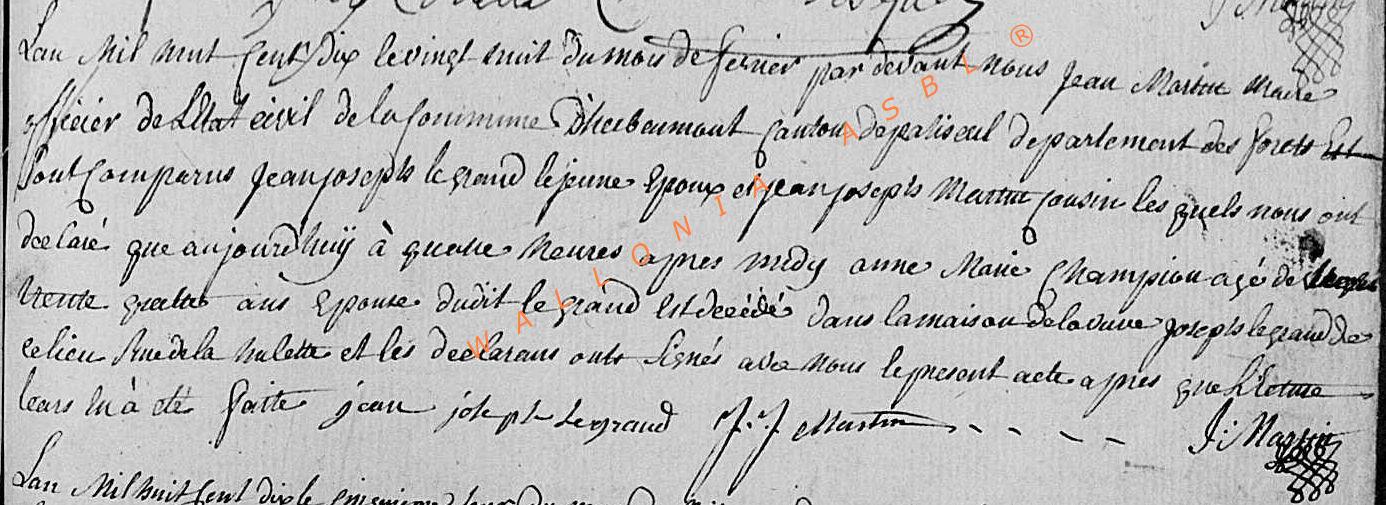 Lan Mil huit Cent dix le vingt huit du mois de fevrier par devant nous Jean Martin Maire
officier de L'Etat civil de la Commune D'herbeumont Canton de paliseul departement des forets Est
sont Comparus Jean joseph le grand le jeune Epoux et jean joseph Martin Cousin les quels nous ont
declaré que aujourdhuÿ à quatre heures apres midy anne Marie Champion agé de
trente quattre ans Epouse dudit le grand Est decedé dans la maison de la veuve joseph le grand de
ce lieu Rue de la hulette et les declarans onts signés avec nous le present acte apres que Lecture
leurs En à eté faitte jean joseph Legrand J. J Martin - - - - J: Martin
Lan Mil huit Cent dix le
WALLONIA ASBL ®